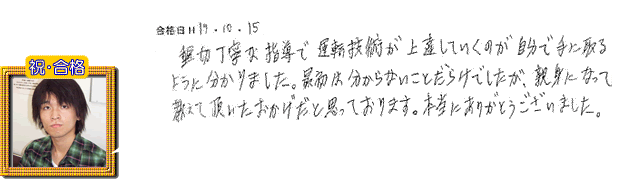 合格日 H 19・10・15
親切丁寧な指導で運転技術が上達していくのが自分で手に取る
ように分かりました。最初は分からないことだらけでしたが、親身になって
教えて頂いたおかげだと思っております。本当にありがとうございました。
祝・合格